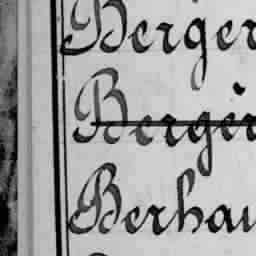 Berger
Berger
Berhau